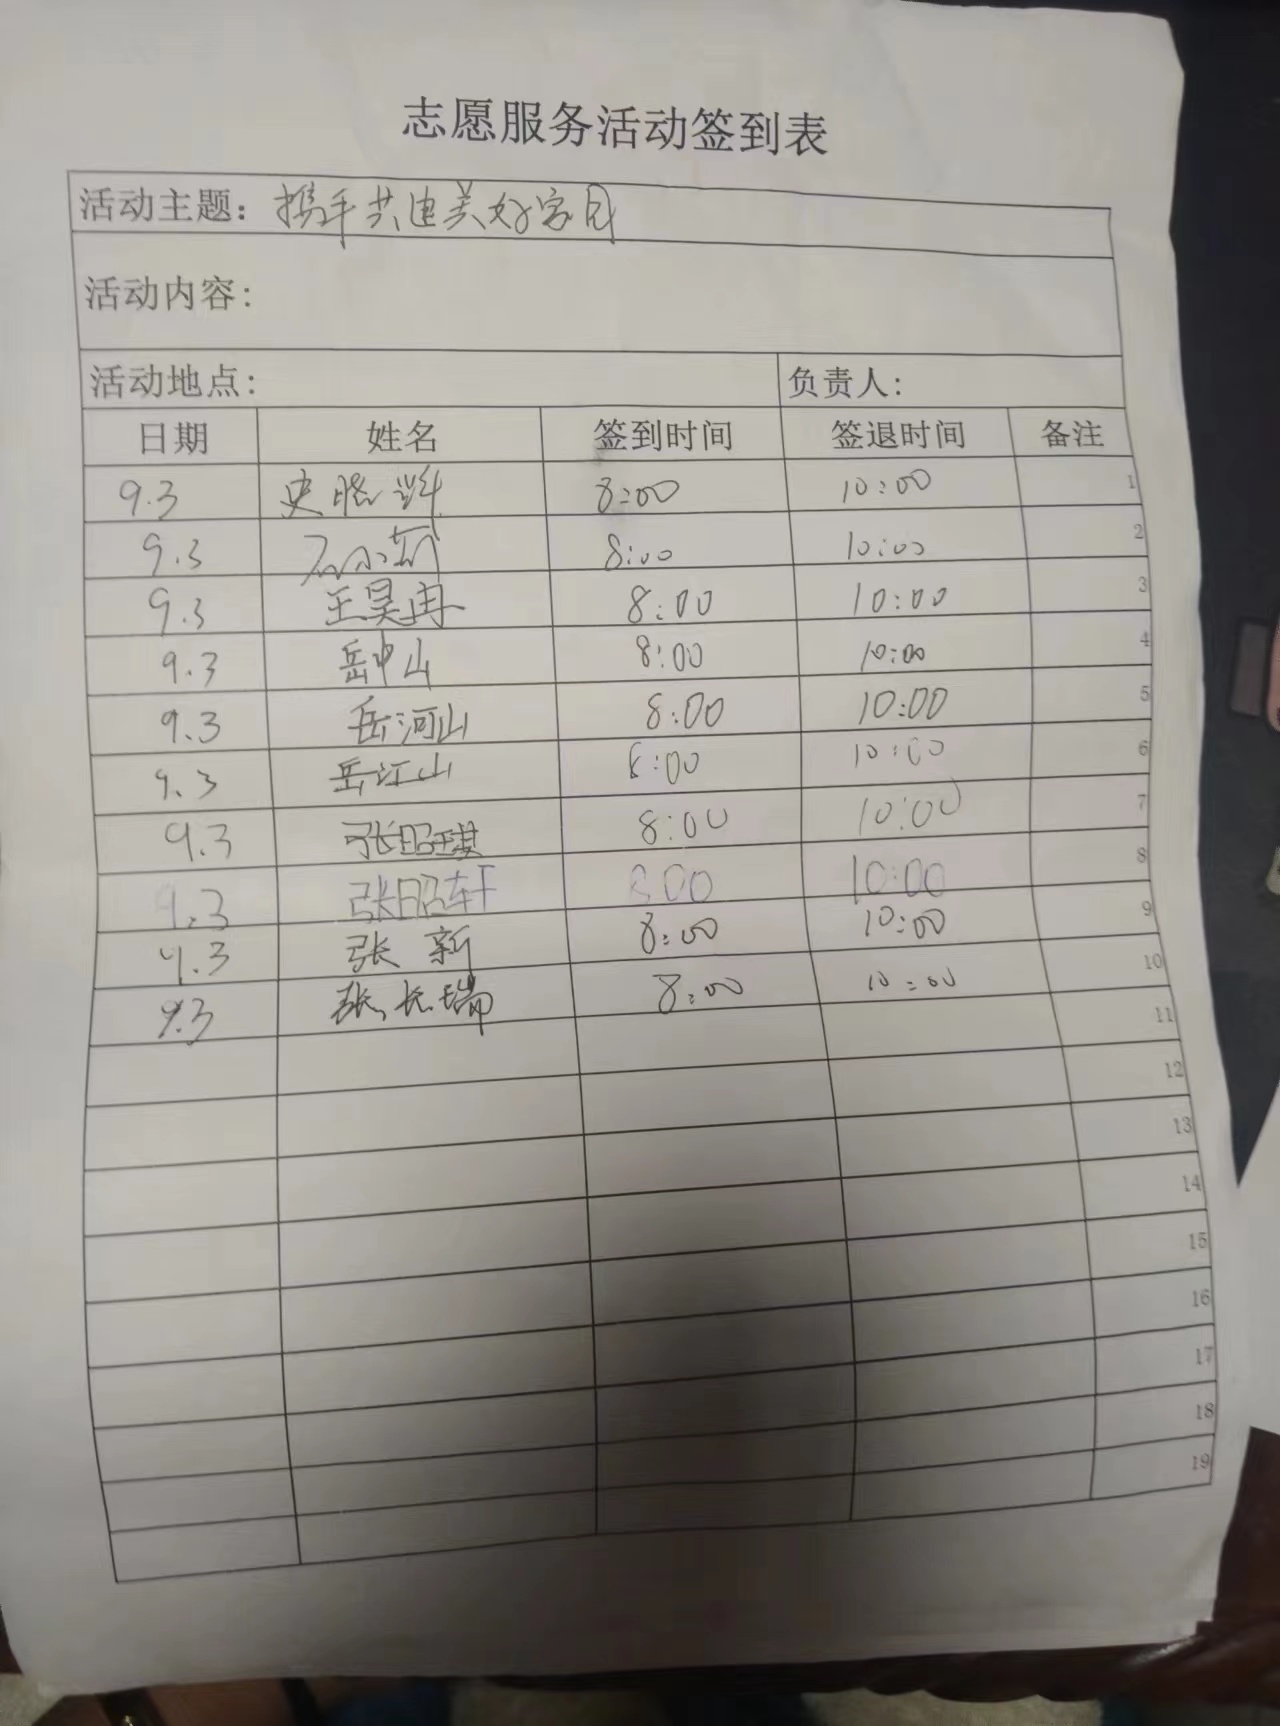 志愿服务活动签到表
活动主题：携手共建美好家园
活动内容：
活动地点： 负责人：
日期 姓名 签到时间 签退时间 备注
9.3 史晓 8:00 10:00 1
9.3 8:00 10:00 2
9.3 王昊冉 8:00 10:00 3
9.3 岳中山 8:00 10:00 4
9.3 岳河山 8:00 10:00 5
9.3 岳江山 8:00 10:00 6
9.3 张昭琪 8:00 10:00 7
9.3 张昭轩 8:00 10:00 8
9.3 张新 8:00 10:00 9
9.3 张长瑞 8:00 10:00 10
11
12
13
14
15
16
17
18
19